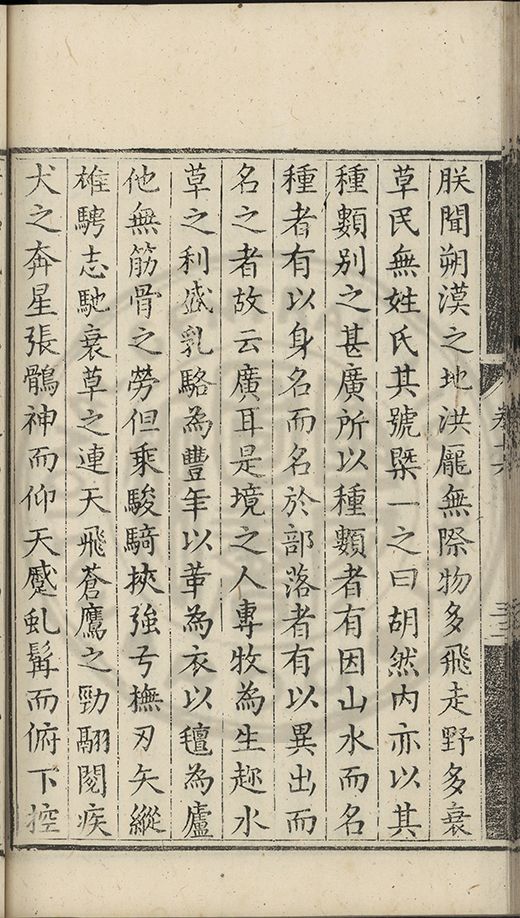 朕聞朔漠之地洪厖無際物多飛走野多衰
草民無姓氏其號槩一之曰胡然内亦以其
種類别之甚廣所以種類者有因山水而名
種者有以身名而名於部落者有以異出而
名之者故云廣耳是境之人專牧為生趂水
草之利盛乳駱為豐年以革為衣以氊為廬
他無筋骨之勞但乘駿騎挾強弓撫刃矢縱
雄騁志馳衰草之連天飛蒼鷹之勁翮閱疾
犬之奔星張鶻神而仰天蹙虬髯而俯下控
卷十六